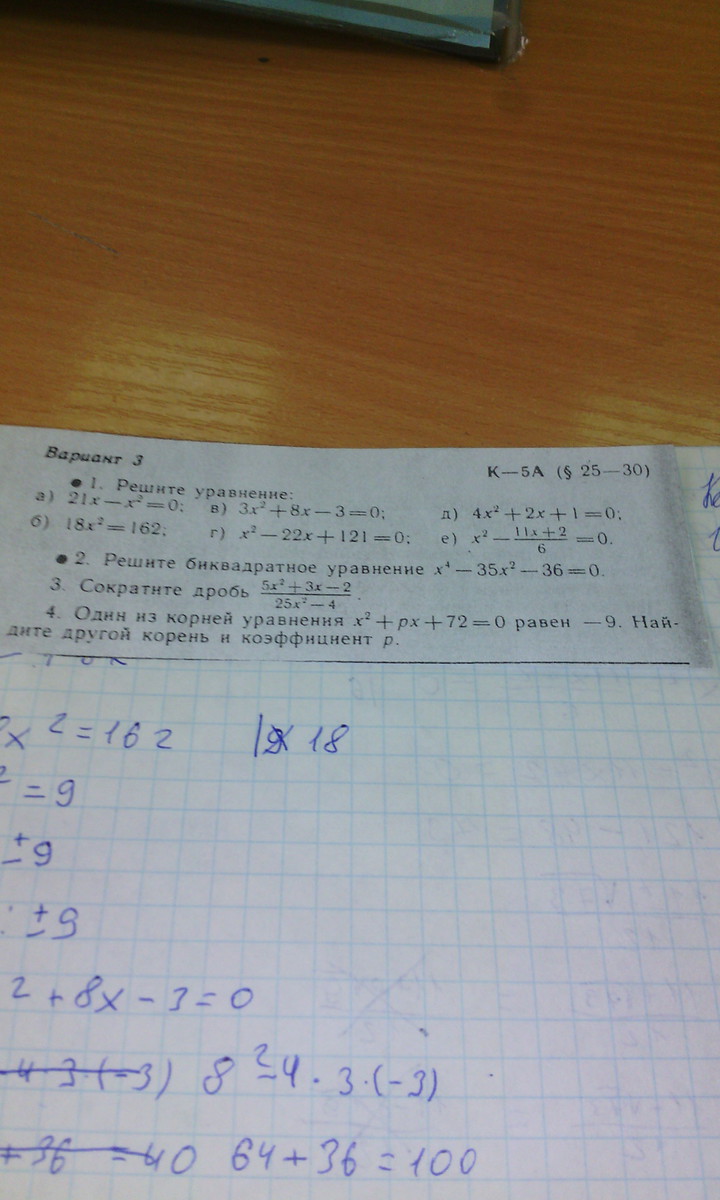 Вариант 3
К—5А (§ 25—30)
● 1. Решите уравнение:
а) 21x — x² = 0; в) 3x² + 8x — 3 = 0; д) 4x² + 2x + 1 = 0;
б) 18x² = 162; г) x² — 22x + 121 = 0; е) x² — (11x + 2)/6 = 0.
● 2. Решите биквадратное уравнение x⁴ — 35x² — 36 = 0.
3. Сократите дробь (5x² + 3x — 2)/(25x² — 4).
4. Один из корней уравнения x² + px + 72 = 0 равен —9. Най-
дите другой корень и коэффициент p.
x² = 162 | 18
² = 9
±9
: ±9
² + 8x - 3 = 0
4·3·(-3) 8² - 4 · 3 · (-3)
+36 = 40 64 + 36 = 100